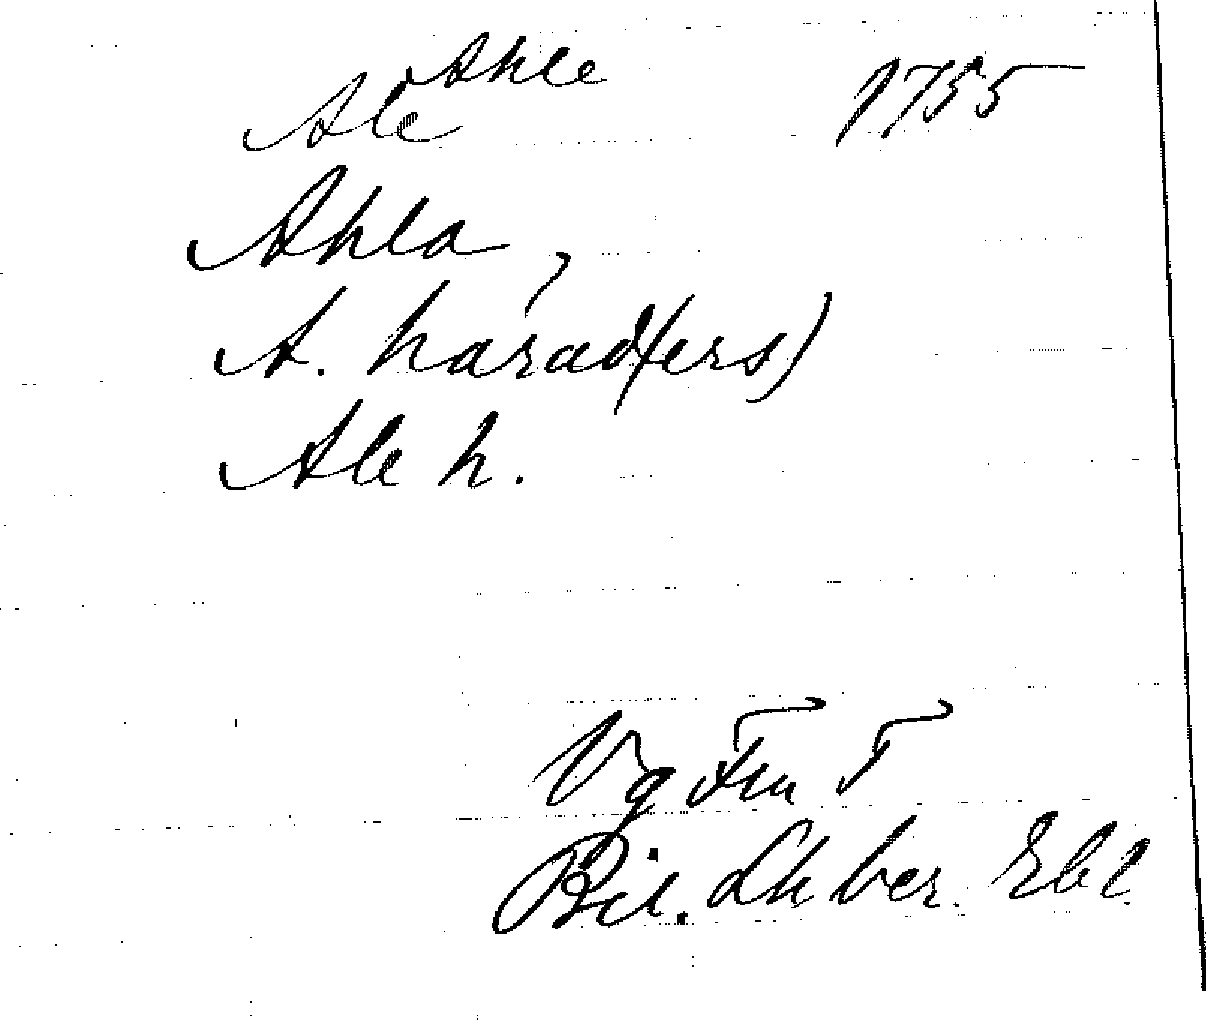 Ahle
Ale 1755
Ahla,
A. härad(ers)
Ale h.
Vg Fm F
Bil. Lk ber. Ebl